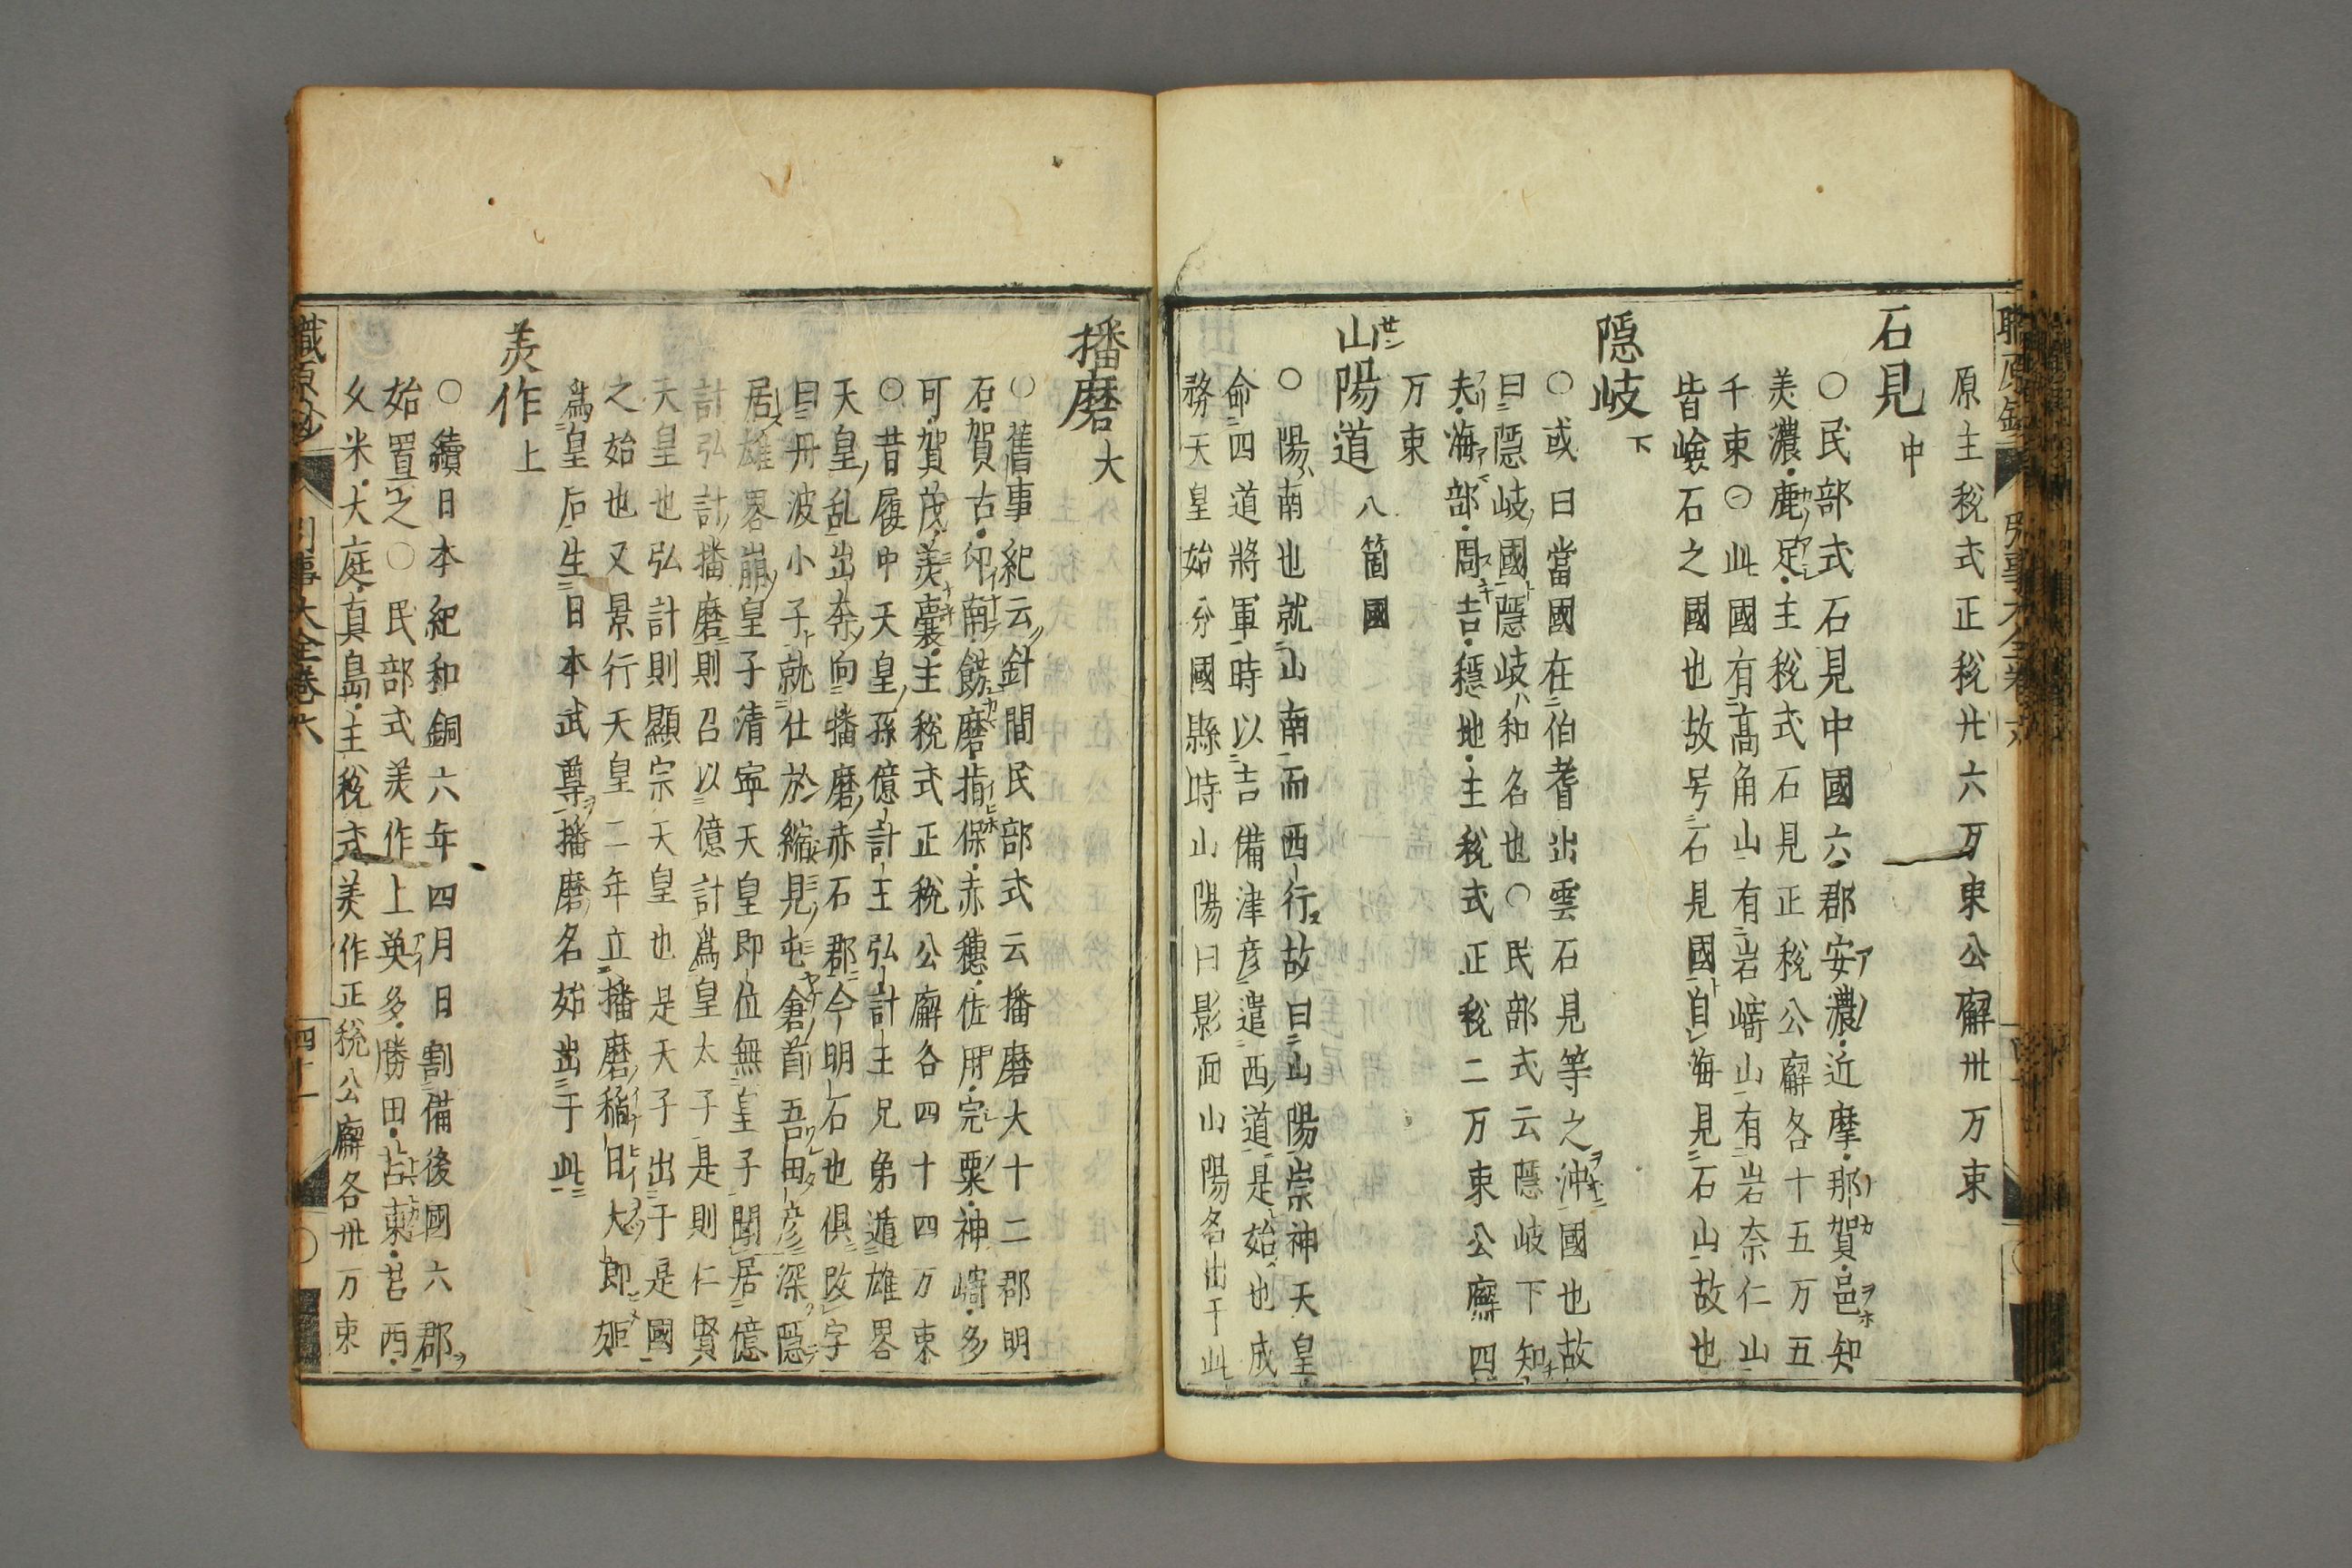 原主税式正税廾六万束公廨卅万束
石見 中
○民部式石見中國六郡安濃・近摩・那賀・邑知・
美濃・鹿足・主税式石見正税公廨各十五万五
千束○此國有高角山有岩﨑山有岩奈仁山
皆嶮石之國也故号石見國自海見石山故也
隠岐 下
○或曰當國在伯耆出雲石見等之沖國也故
曰隠岐國隠岐ハ和名也○民部式云隠岐下知
夫・海部・周吉・穏地・主税式正税二万束公廨四
万束
山陽道 八箇國
○陽ハ南也就山南而西行故曰山陽崇神天皇
命四道將軍時以吉備津彦遣西道是始也成
務天皇始分國縣時山陽曰影面山陽名出于此
播磨 大
○舊事紀云針間民部式云播磨大十二郡明
石・賀古・印南・餝磨・揃保・赤穗・佐用・完粟・神﨑・多
可・賀茂・美嚢・主税式正税公廨各四十四万束
○昔履中天皇孫億計王弘計王兄弟遁雄畧
天皇乱出奈向播磨赤石郡今明石也俱改字
曰丹波小子就仕於縮見屯倉首吾田彦深隠
居雄畧崩皇子清寧天皇即位無皇子聞居億
計弘計播磨則召以億計為皇太子是則仁賢
天皇也弘計則顯宗天皇也是天子出于是國
之始也又景行天皇二年立播磨稲日大郎姫
為皇后生日本武尊播磨名始出于此
美作 上
○續日本紀和銅六年四月日割備後國六郡
始置之○民部式美作上英多・勝田・苫東・苫西・
久米・大庭・真島・主税式美作正税公廨各卅万束
職原抄 引事大全巻六 四十一